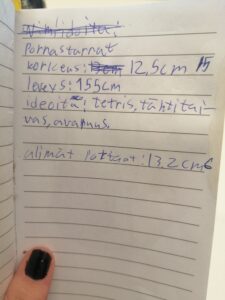 Porrastarrat
korkeus: 12,5cm
leveys: 155cm
ideoita: tetris, tähtitai-
vas, avaruus.
alimat potkaat: 13,2cm